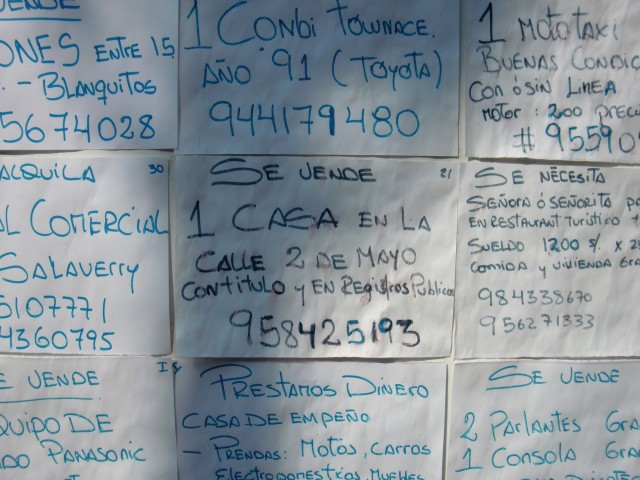 VENDE
ONES ENTRE 15
. - BLANQUITOS
5674028
1 COMBI TOWNACE.
AÑO 91 (TOYOTA)
944179480
1 MOTOTAXI
BUENAS CONDIC
CON ó SIN LINEA
MOTOR: 200 precu
# 95590
ALQUILA 30
AL COMERCIAL
SALAVERRY
5107771
4360795
SE VENDE 21
1 CASA EN LA
CALLE 2 DE MAYO
CON TITULO y EN REGISTROS PUBLICOS
958425193
SE NECESITA
SEÑORA ó SEÑORITA pa
EN RESTAURANT TURÍSTICO
SUELDO 1200 S/. x 25
COMIDA y VIVIENDA GRA
984338670
956271333
E VENDE
QUIPO DE
DO PANASONIC
PRESTAMOS DINERO
CASA DE EMPEÑO
- PRENDAS: MOTOS, CARROS
ELECTRODOMESTICOS, MUEBLES
SE VENDE
2 PARLANTES GRA
1 CONSOLA GRA